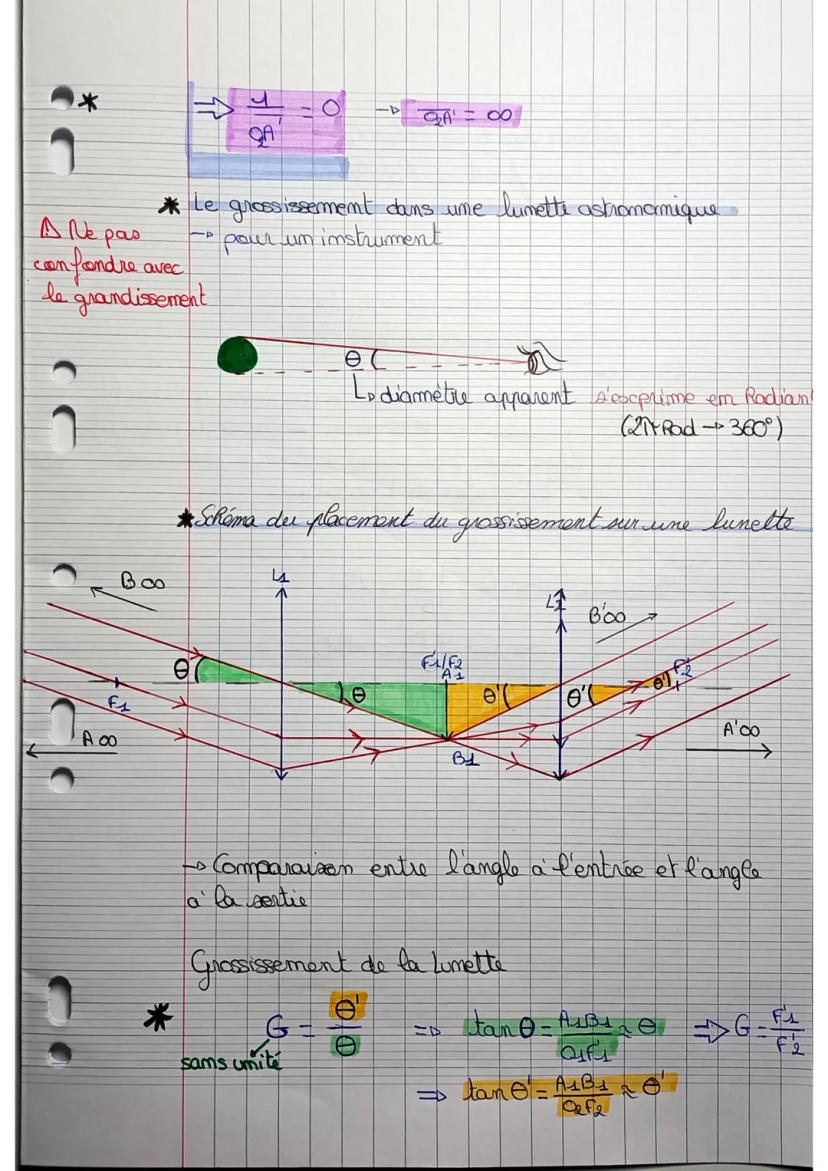 * ⇒ 1/O₂A' = 0 → O₂A' = ∞
* Le grossissement dans une lunette astronomique
→ pour un instrument
⚠ Ne pas
confondre avec
le grandissement
θ
↳ diamètre apparent s'exprime en Radian
(2π Rad → 360°)
* Schéma du placement du grossissement sur une lunette
B∞
L1
L2
B'∞
F'1/F2
A1
F'2
θ
θ
θ'
θ'
θ'
F1
A∞
B1
A'∞
→ Comparaison entre l'angle à l'entrée et l'angle
à la sortie
Grossissement de la lunette
* G = θ'/θ ⇒ tan θ = A1B1/O1F'1 ≈ θ ⇒ G = F'1/F'2
sans unité
⇒ tan θ' = A1B1/O2F2 ≈ θ'